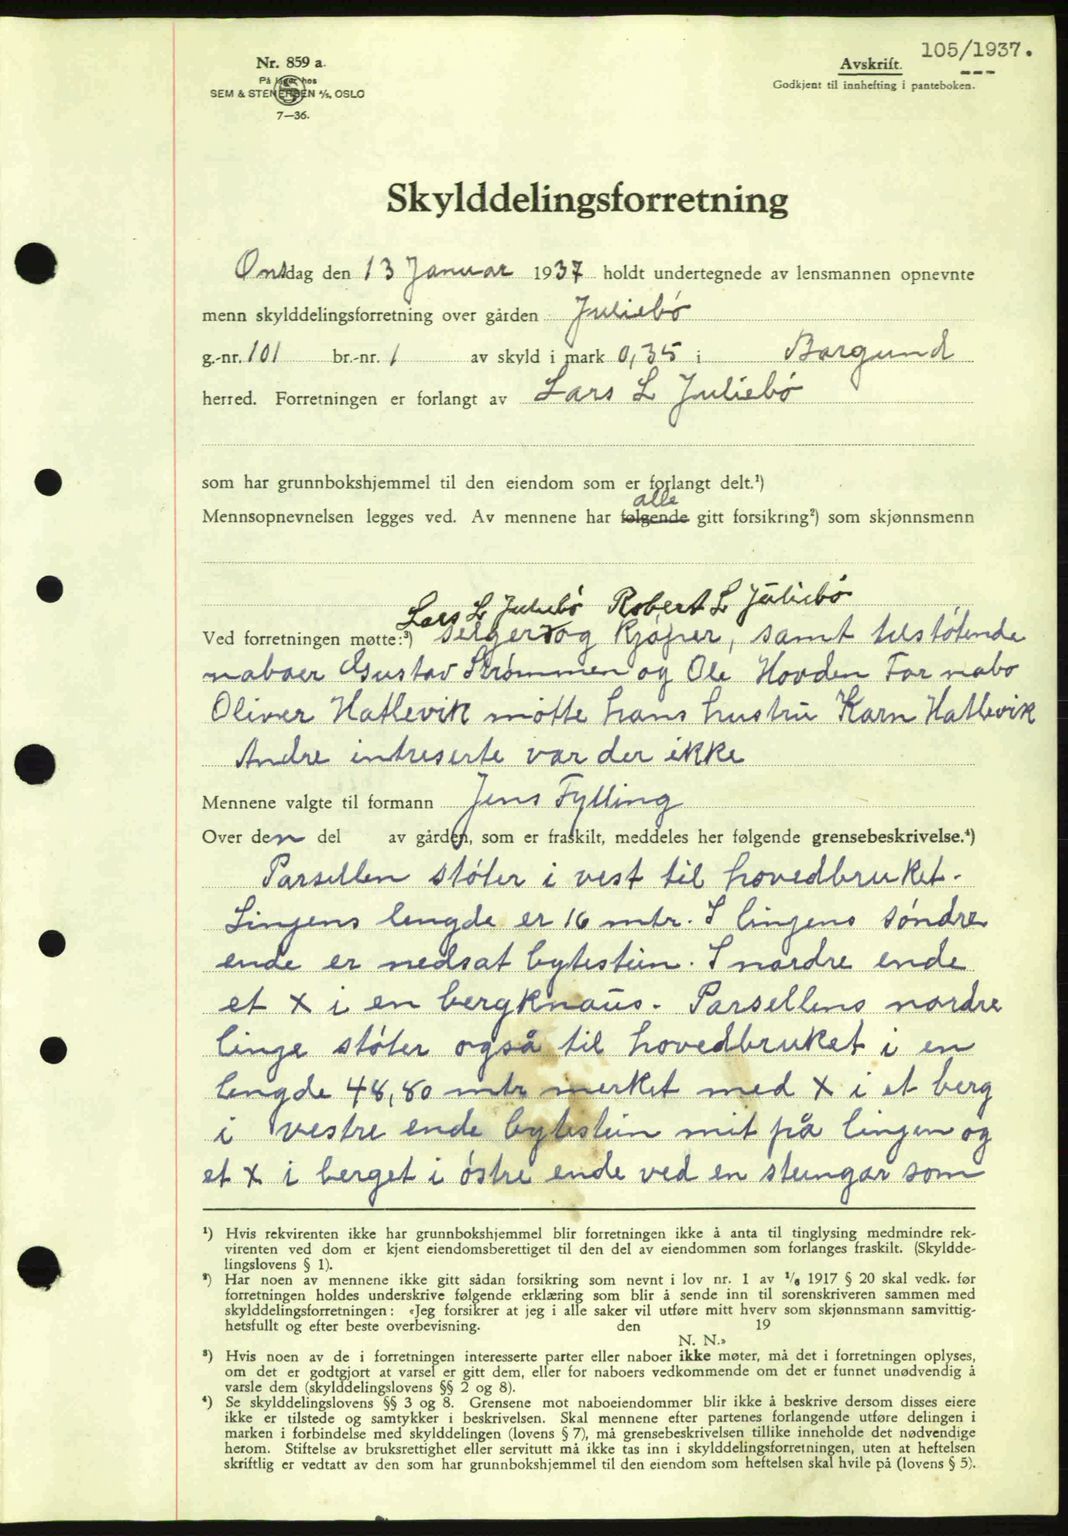 105/1937.
Nr. 859 a.
På lager hos
SEM & STENERSEN A/S, OSLO
7—36.
Avskrift.
Godkjent til innhefting i panteboken.
Skylddelingsforretning
Onsdag den 13 Januar 1937 holdt undertegnede av lensmannen opnevnte
menn skylddelingsforretning over gården Juliebø
g.-nr. 101 br.-nr. 1 av skyld i mark 0,35 i Borgund
herred. Forretningen er forlangt av Lars L Juliebø
som har grunnbokshjemmel til den eiendom som er forlangt delt.¹)
alle
Mennsopnevnelsen legges ved. Av mennene har følgende gitt forsikring²) som skjønnsmenn
Lars L Juliebø Robert L Juliebø
Ved forretningen møtte:³) selger og kjøper, samt tilstøtende
naboer Gustav Strømmen og Ole Hovden For nabo
Oliver Hatlevik møtte hans hustru Karn Hatlevik
Andre intreserte var der ikke
Mennene valgte til formann Jens Fylling
Over den del av gården, som er fraskilt, meddeles her følgende grensebeskrivelse.⁴)
Parsellen støter i vest til hovedbruket.
Linjens lengde er 16 mtr. I linjens søndre
ende er nedsat bytestein. I nordre ende
et X i en bergknaus. Parsellens nordre
linje støter også til hovedbruket i en
lengde 48,80 mtr merket med X i et berg
i vestre ende bytestein mit på linjen og
et X i berget i østre ende ved en steingar som
¹) Hvis rekvirenten ikke har grunnbokshjemmel blir forretningen ikke å anta til tinglysing medmindre rek-
virenten ved dom er kjent eiendomsberettiget til den del av eiendommen som forlanges fraskilt. (Skyldde-
lingslovens § 1).
²) Har noen av mennene ikke gitt sådan forsikring som nevnt i lov nr. 1 av 1/6 1917 § 20 skal vedk. før
forretningen holdes underskrive følgende erklæring som blir å sende inn til sorenskriveren sammen med
skylddelingsforretningen: «Jeg forsikrer at jeg i alle saker vil utføre mitt hverv som skjønnsmann samvittig-
hetsfullt og efter beste overbevisning. den 19
N. N.»
³) Hvis noen av de i forretningen interesserte parter eller naboer ikke møter, må det i forretningen oplyses,
om det er godtgjort at varsel er gitt dem, eller for naboers vedkommende om det er funnet unødvendig å
varsle dem (skylddelingslovens §§ 2 og 8).
⁴) Se skylddelingslovens §§ 3 og 8. Grensene mot naboeiendommer blir ikke å beskrive dersom disses eiere
ikke er tilstede og samtykker i beskrivelsen. Skal mennene efter partenes forlangende utføre delingen i
marken i forbindelse med skylddelingen (lovens § 7), må grensebeskrivelsen tillike inneholde det nødvendige
herom. Stiftelse av bruksrettighet eller servitutt må ikke tas inn i skylddelingsforretningen, uten at heftelsen
skriftlig er vedtatt av den som har grunnbokshjemmel til den eiendom som heftelsen skal hvile på (lovens § 5).